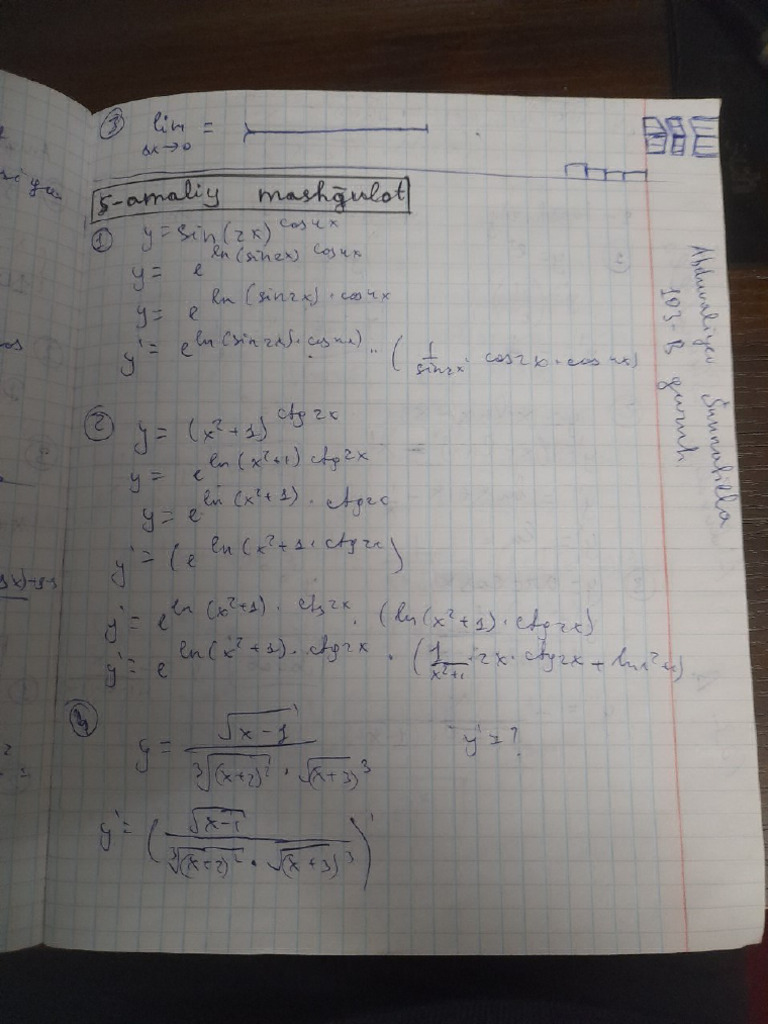 ③ lim =
Δx→0
5-amaliy mashg'ulot
① y = sin(2x)^cos4x
y = e^ln(sin2x)^cos4x
y = e^ln(sin2x)·cos4x
y' = e^ln(sin2x)·cos4x) · (1/sin2x · cos2x · cos4x)
② y = (x²+1)^ctg2x
y = e^ln(x²+1)ctg2x
y = e^ln(x²+1)·ctg2x
y' = (e^ln(x²+1·ctg2x)
y' = e^ln(x²+1)·ctg2x · (ln(x²+1)·ctg2x)
y' = e^ln(x²+1)·ctg2x · (1/x²+1 · 2x · ctg2x +
y = √x-1 / ³√(x+2)² · √(x+3)³ y' = ?
y' = (√x-1 / ³√(x+2)² · √(x+3)³)'
103-B guruh